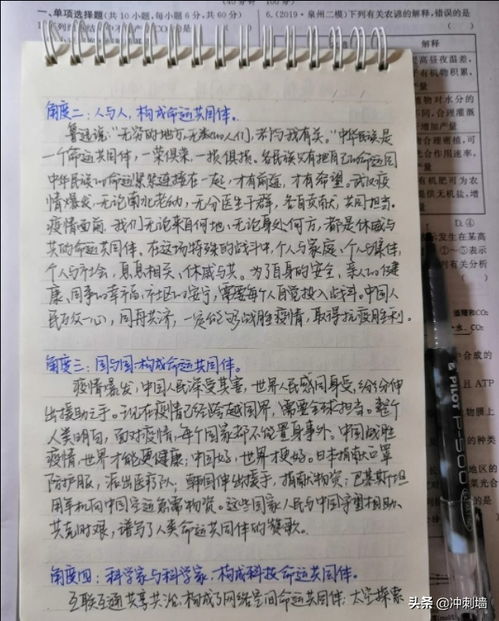 一、单项选择题(共10小题,每小题6分,共60分)
6.(2019·泉州二模)下列有关农谚的解释,错误的是
( )
解释
高昼夜温差,
有机物积累,
量
植物对水分的
不同,合理灌溉
增加产量
合理密植,可
光合作用速率,
产量
有机肥可为农
供无机盐,增
量
D.④
示发生在某高
①~⑤表示
列有关分析
( )
角度二:人与人,构成命运共同体。
鲁迅说:“无穷的地方,无数的人们,都与我有关。”中华民族是
一个命运共同体,一荣俱荣,一损俱损。各民族只有把自己的命运同
中华民族的命运紧紧连接在一起,才有前途,才有希望。武汉疫
情爆发,无论南北老幼,无分医生干群,各自贡献,共同担当。
疫情面前,我们无论来自何地,无论身处何方,都是休戚与
共的命运共同体。在这场特殊的战斗中,个人与家庭、个人与集体、
个人与社会,息息相关、休戚与共。为了自身的安全、亲人的健
康、同事的幸福、社区的安宁,需要每个人自觉投入战斗。中国人
民万众一心,同舟共济,一定能够战胜疫情,取得抗疫胜利。
角度三:国与国,构成命运共同体。
疫情爆发,中国人民深受其害,世界人民感同身受,纷纷伸
出援助之手。现在疫情已经跨越国界,需要全球担当。整个
人类明白,面对疫情,每个国家都不能置身事外。中国战胜
疫情,世界才能更健康;中国好,世界才更好。日本捐献口罩
防护服,派出医疗队;韩国伸出援手,捐献物资;巴基斯坦
用军机向中国空运急需物资。这些国家人民与中国守望相助、
共克时艰,谱写了人类命运共同体的赞歌。
角度四:科学家与科学家,构成科技命运共同体。
互联互通共享共治,构成了网络空间命运共同体;太空探索
PILOT P-500
头条@冲刺墙